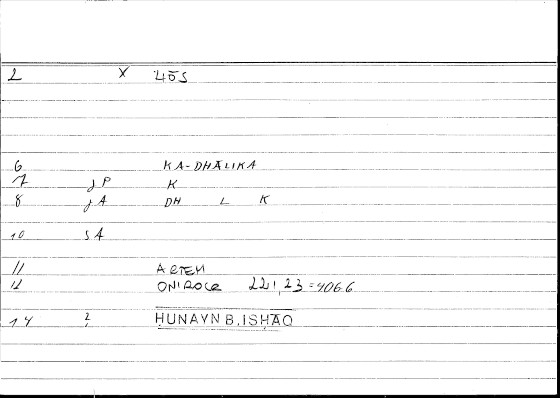 2 X 405
6 KA-DHĀLIKA
7 JP K
8 JA DH L K
10 SA
11 ARTEM
12 ONIROCR 221,23=406.6
14 ? ḤUNAYN B.ISḤĀQ